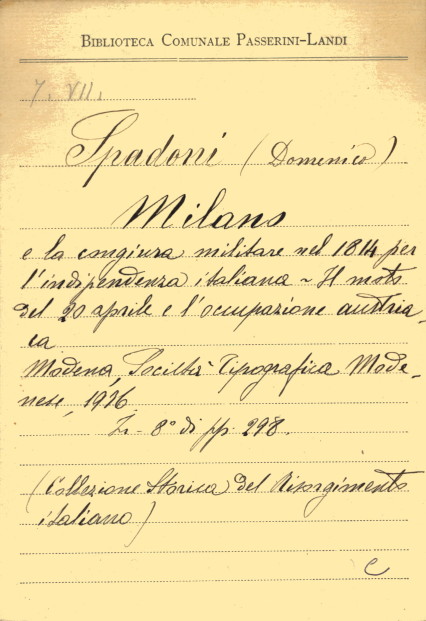 BIBLIOTECA COMUNALE PASSERINI-LANDI
7. VII.
Spadoni (Domenico)
Milano
e la congiura militare nel 1814 per
l'indipendenza italiana ~ Il moto
del 20 aprile e l'occupazione austria-
ca
Modena, Società Tipografica Mode-
nese, 1936
8° di pp. 298.
(Collezione Storica del Risorgimento
italiano)
C